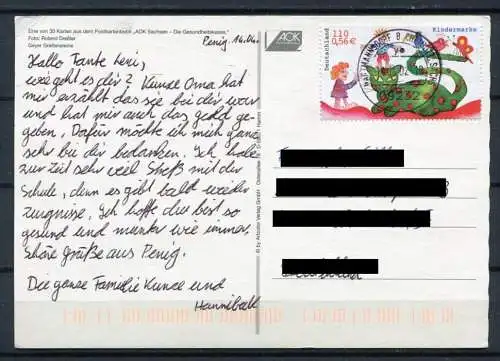 Eine von 30 Karten aus dem Postkartenbuch "AOK Sachsen - Die Gesundheitskasse."
Foto: Roland Dreßler
Geyer Greifensteine
AOK
Penig, 14.04.
Hallo Tante
wie geht es dir? Kunze Oma hat
mir erzählt das sie bei dir war
und hat mir auch das geld ge-
geben. Dafür möchte ich mich ganz
sehr bei dir bedanken. Ich habe
zur Zeit sehr viel Streß mit der
Schule, denn es gibt bald wieder
zeugnisse. Ich hoffe du bist so
gesund und munter wie immer.
Schöne grüße aus Penig.
Die ganze Familie Kunze und
Hanniball
© by Artcolor Verlag GmbH
Deutschland
110
0,56€
Kindermarke
09232